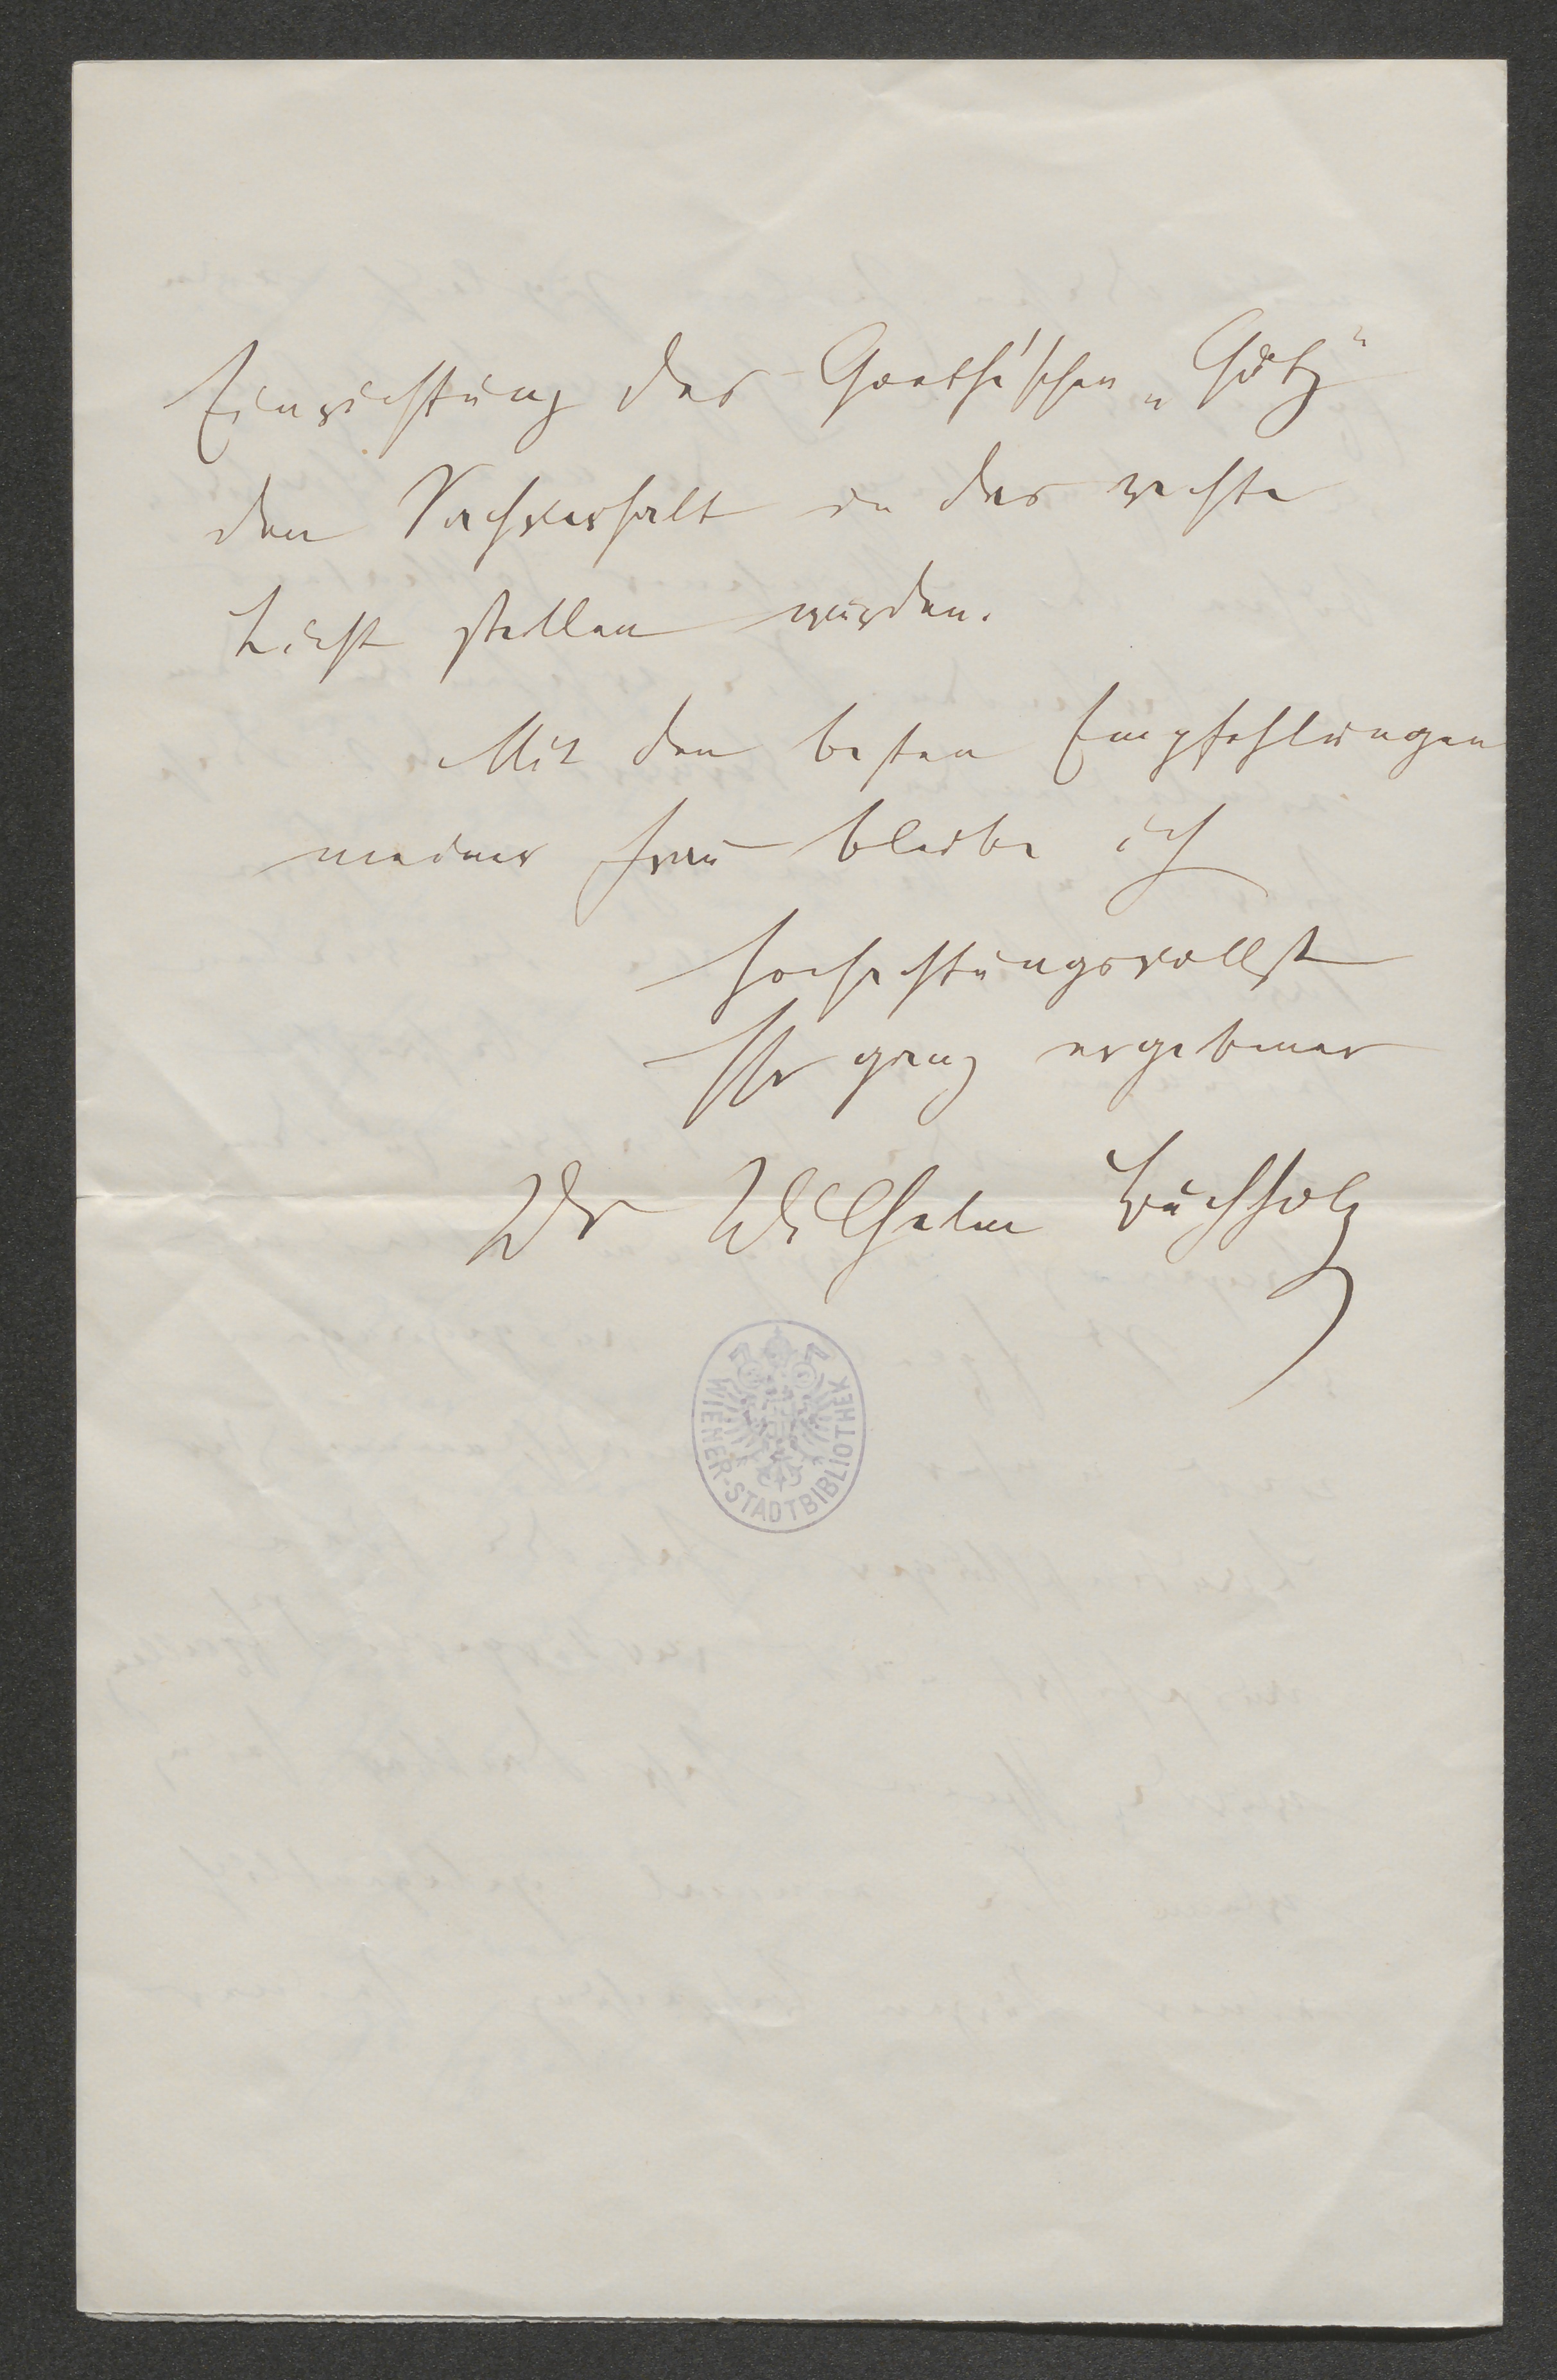 Einrichtung des Goethe'schen „Götz"
den Sachverhalt in das rechte
Licht stellen würden.
Mit den besten Empfehlungen
meiner Frau bleibe ich
hochachtungsvollst
Ihr ganz ergebener
Dr Wilhelm Buchholz
WIENER-STADTBIBLIOTHEK